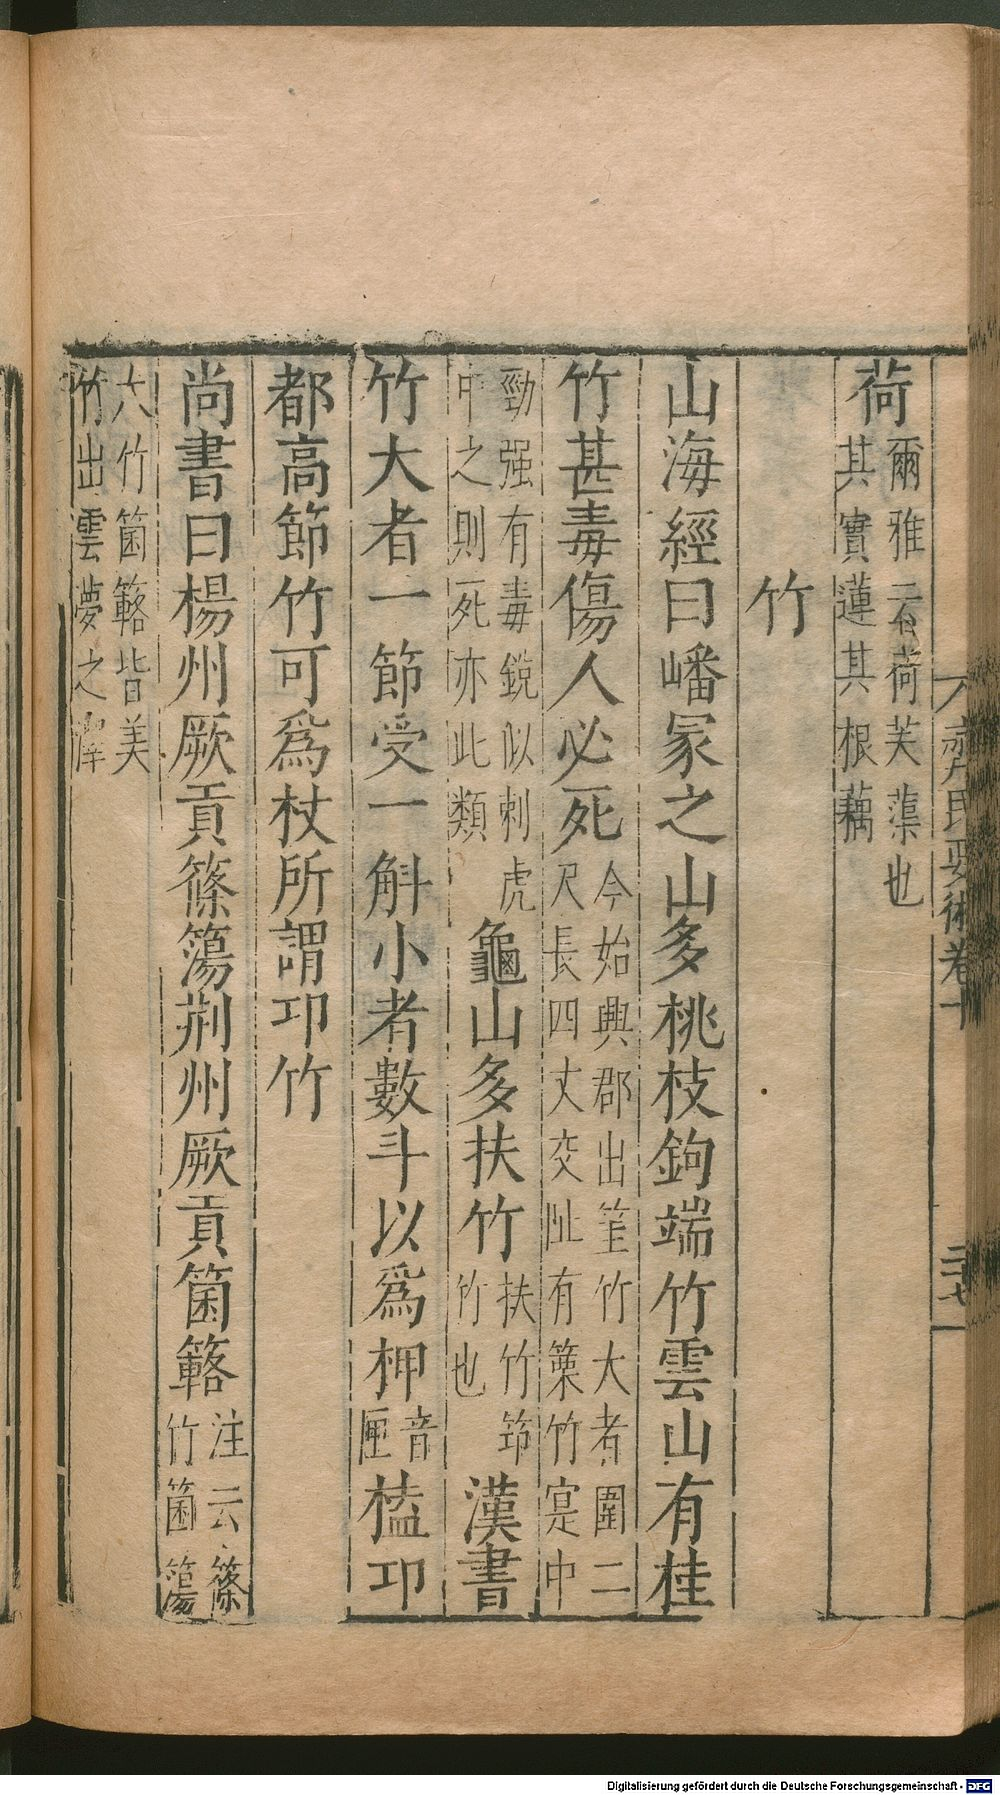 齊民要術卷十
二十七
荷爾雅云荷芙蕖也其實蓮其根藕
竹
山海經曰嶓冢之山多桃枝鉤端竹雲山有桂
竹甚毒傷人必死今始興郡出筀竹大者圍二尺長四丈交阯有篥竹寔中
勁强有毒銳似刺虎中之則死亦此類龜山多扶竹扶竹筇竹也漢書
竹大者一節受一斛小者數斗以爲柙音匣榼卭
都高節竹可爲杖所謂卭竹
尚書曰楊州厥貢篠簜荆州厥貢箘簵注云篠竹箘簜
大竹箘簵皆美竹出雲夢之澤
Digitalisierung gefördert durch die Deutsche Forschungsgemeinschaft - DFG